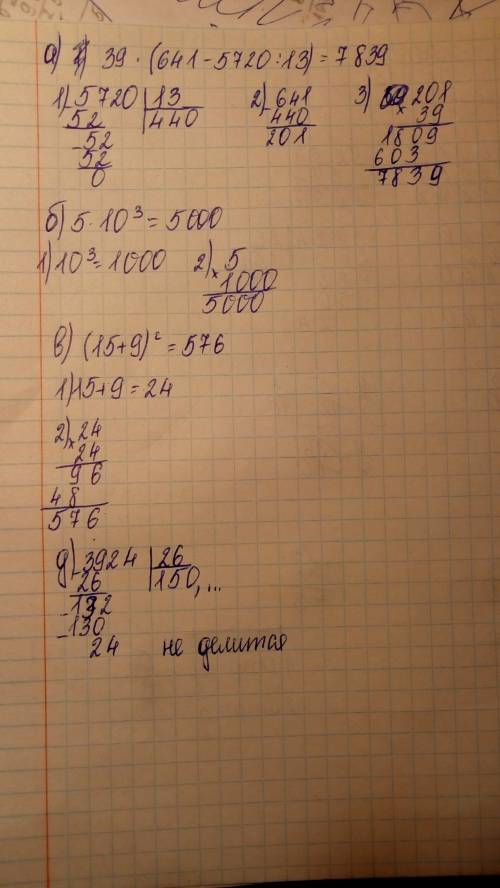 а) 39 · (641 - 5720 : 13) = 7839
1) 5720 | 13
52 440
- 52
52
0
2) - 641
440
201
3) 201
× 39
1809
603
7839
б) 5 · 10³ = 5000
1) 10³ = 1000
2) × 5
1000
5000
в) (15+9)² = 576
1) 15+9 = 24
2) × 24
24
96
48
576
д) - 3924 | 26
26 150,...
- 132
- 130
24 не делится